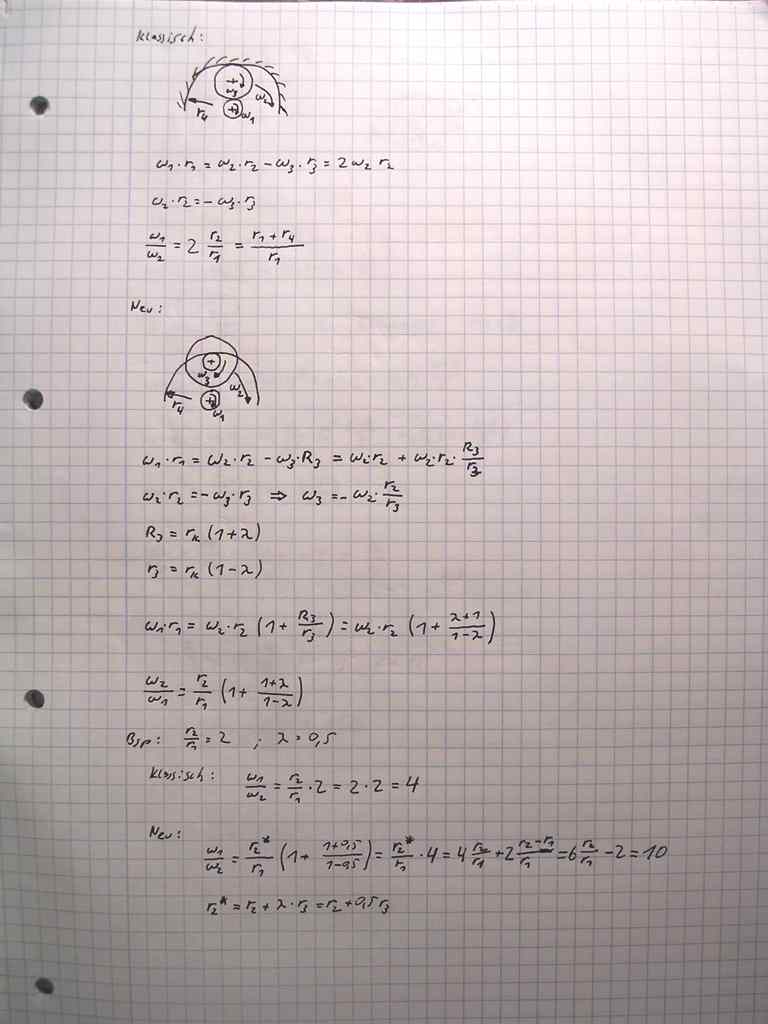 Klassisch:
ω₃
ω₂
r₄
ω₁
ω₁·r₁ = ω₂·r₂ - ω₃·r₃ = 2ω₂ r₂
ω₂·r₂ = -ω₃·r₃
ω₁/ω₂ = 2 r₂/r₁ = (r₁+r₄)/r₁
Neu:
ω₃
ω₂
r₄
ω₁
ω₁·r₁ = ω₂·r₂ - ω₃·R₃ = ω₂·r₂ + ω₂·r₂·R₃/r₃
ω₂·r₂ = -ω₃·r₃ ⇒ ω₃ = -ω₂·r₂/r₃
R₃ = rₖ (1+λ)
r₃ = rₖ (1-λ)
ω₁·r₁ = ω₂·r₂ (1 + R₃/r₃) = ω₂·r₂ (1 + (λ+1)/(1-λ))
ω₂/ω₁ = r₂/r₁ (1 + (1+λ)/(1-λ))
Bsp: r₂/r₁ = 2 ; λ = 0,5
Klassisch: ω₁/ω₂ = r₂/r₁ · 2 = 2·2 = 4
Neu:
ω₁/ω₂ = r₂*/r₁ (1 + (1+0,5)/(1-0,5)) = r₂*/r₁ · 4 = 4 r₂/r₁ + 2 (r₂-r₁)/r₁ = 6 r₂/r₁ - 2 = 10
r₂* = r₂ + λ·r₃ = r₂ + 0,5 r₃